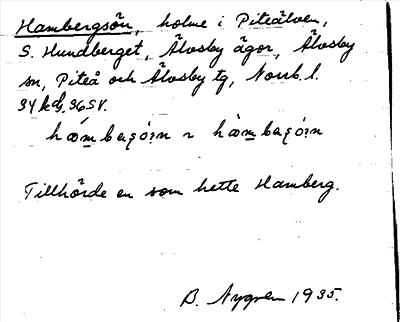 Hambergsön, holme i Piteälven,
S. Hundberget, Älvsby ägor, Älvsby
sn, Piteå och Älvsby tg, Norrb. l.
34 kds. 36 SV.
Tillhörde en som hette Hamberg.
B. Nygren 1935.